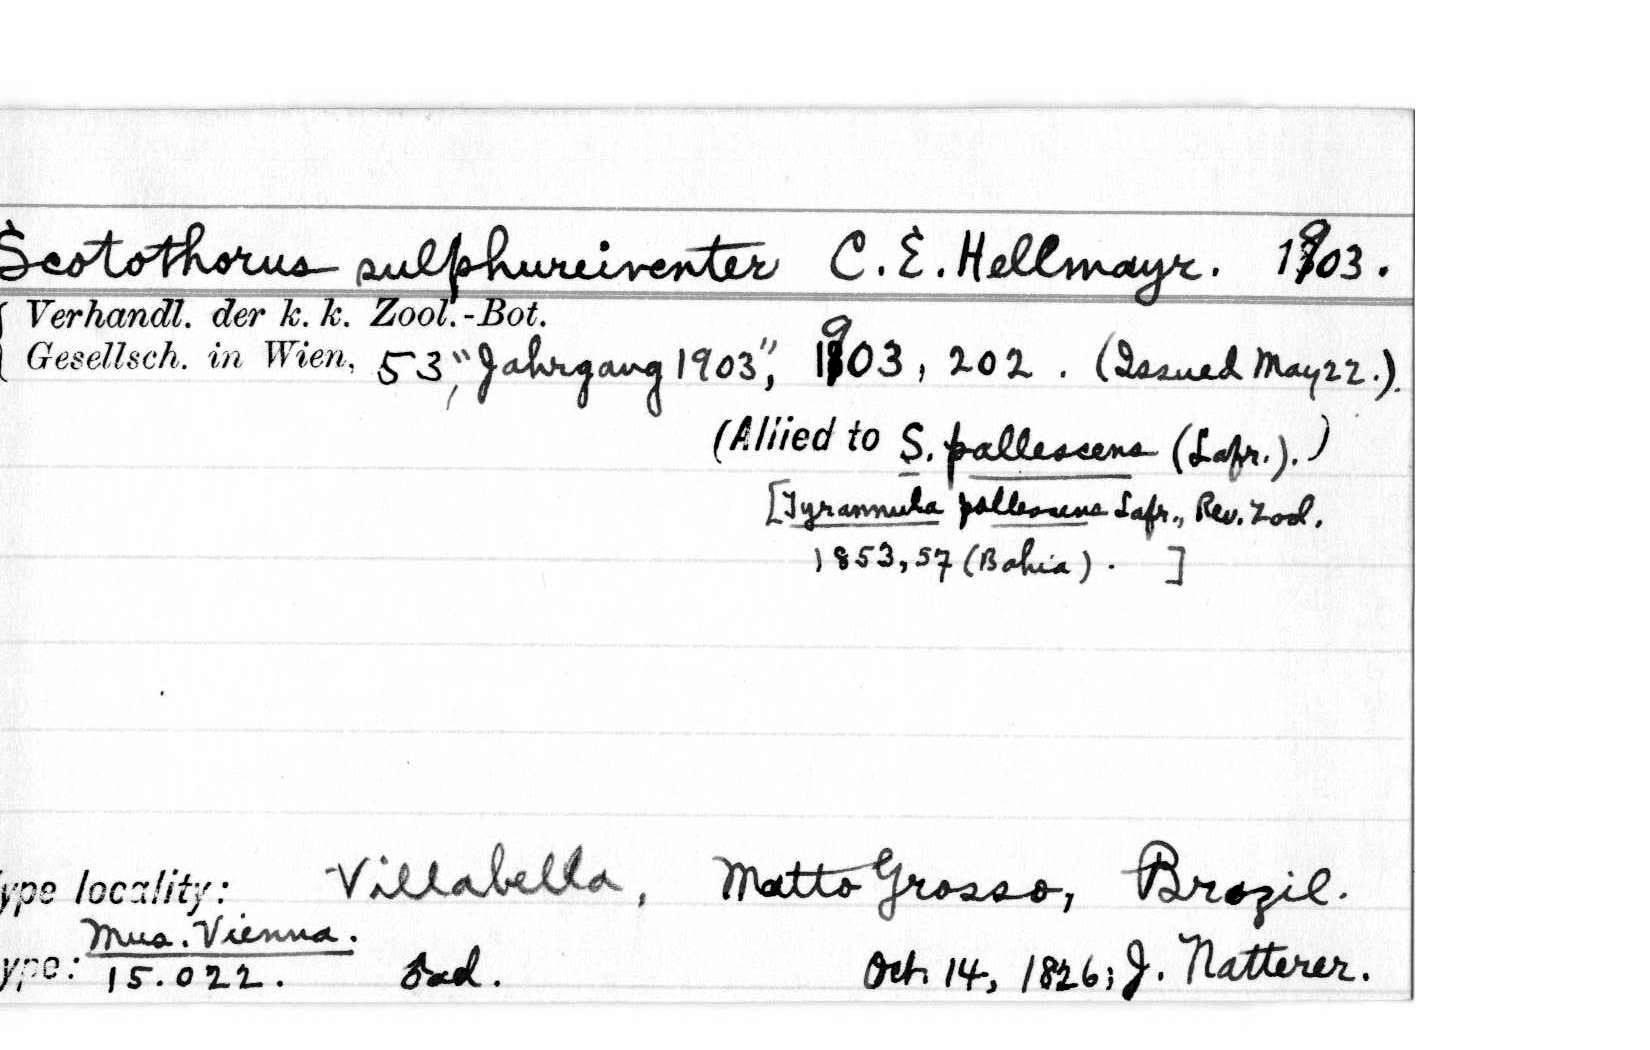 Scotothorus sulphureiventer C. E. Hellmayr. 1903.
Verhandl. der k. k. Zool.-Bot.
Gesellsch. in Wien, 53, "Jahrgang 1903", 1903, 202. (Issued May 22.).
(Allied to S. pallescens (Lafr.).)
[Tyrannula pallescens Lafr., Rev. Zool.
1853, 57 (Bahia). ]
ype locality: Villabella, Matto Grosso, Brazil.
Mus. Vienna.
ype: 15.022. ad. Oct. 14, 1826; J. Natterer.